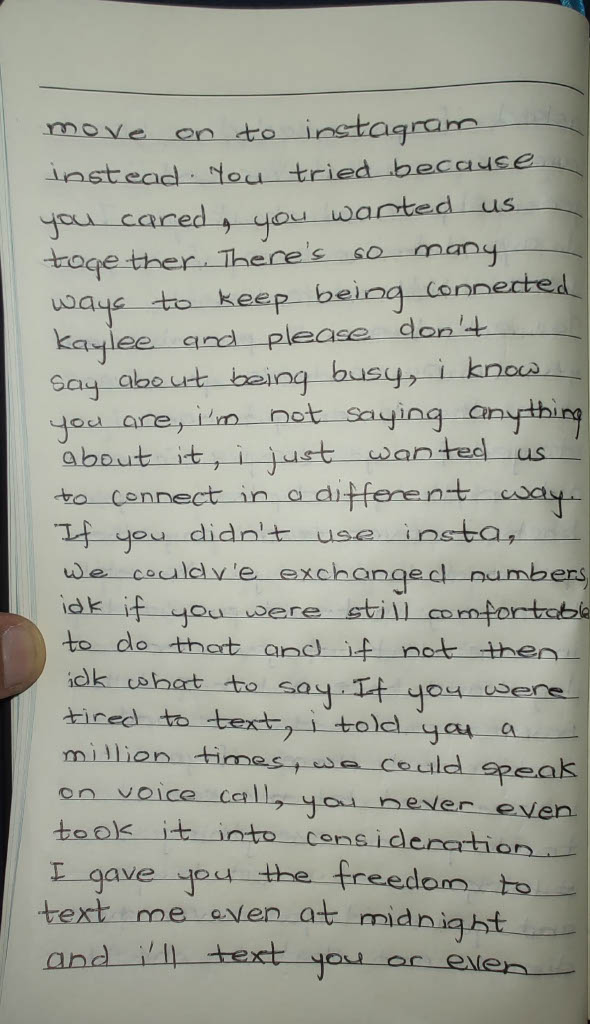 move on to instagram
instead. You tried because
you cared, you wanted us
together. There's so many
ways to keep being connected
Kaylee and please don't
say about being busy, i know
you are, i'm not saying anything
about it, i just wanted us
to connect in a different way.
If you didn't use insta,
we couldv'e exchanged numbers,
idk if you were still comfortable
to do that and if not then
idk what to say. If you were
tired to text, i told you a
million times, we could speak
on voice call, you never even
took it into consideration.
I gave you the freedom to
text me even at midnight
and i'll text you or even